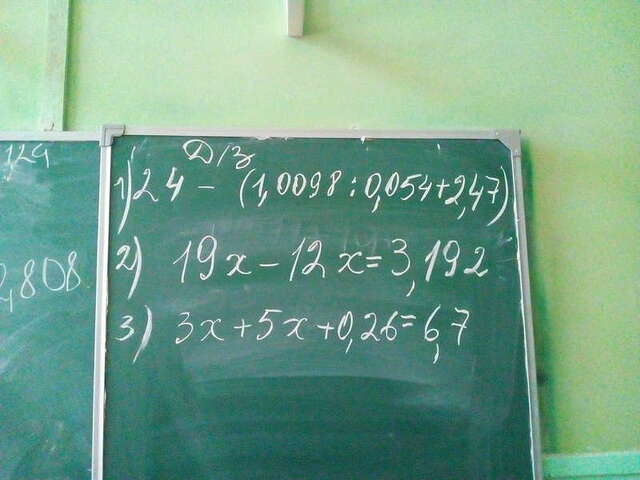 ,129
,808
Д/З
1) 24 - (1,0098 : 0,054 + 2,47)
2) 19x - 12x = 3,192
3) 3x + 5x + 0,26 = 6,7